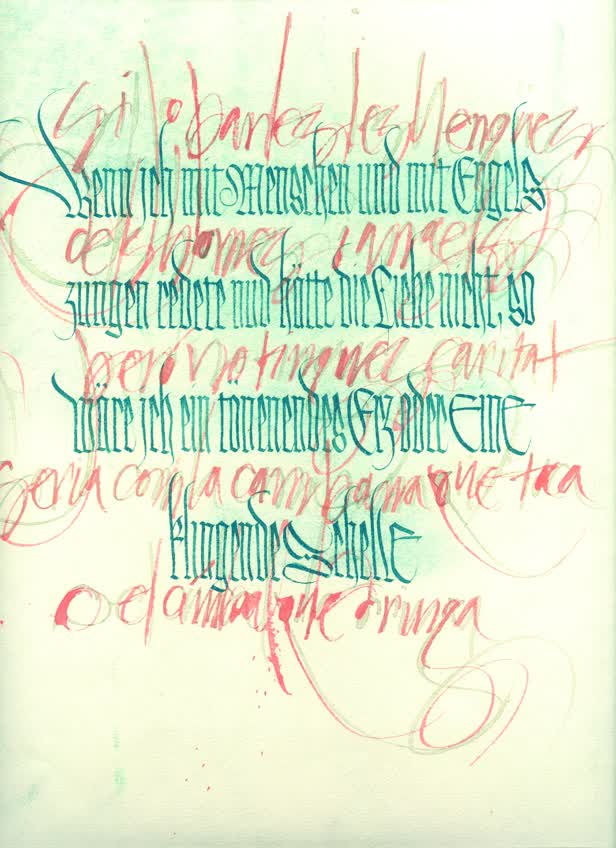 Si jo parles les llengües
Wenn ich mit Menschen und mit Engels
dels homes i àngels
zungen redete und hätte die Liebe nicht, so
però no tingués caritat
wäre ich ein tönendes Erz oder eine
seria com la campana que toca
klingende Schelle
o el címbal que dringa